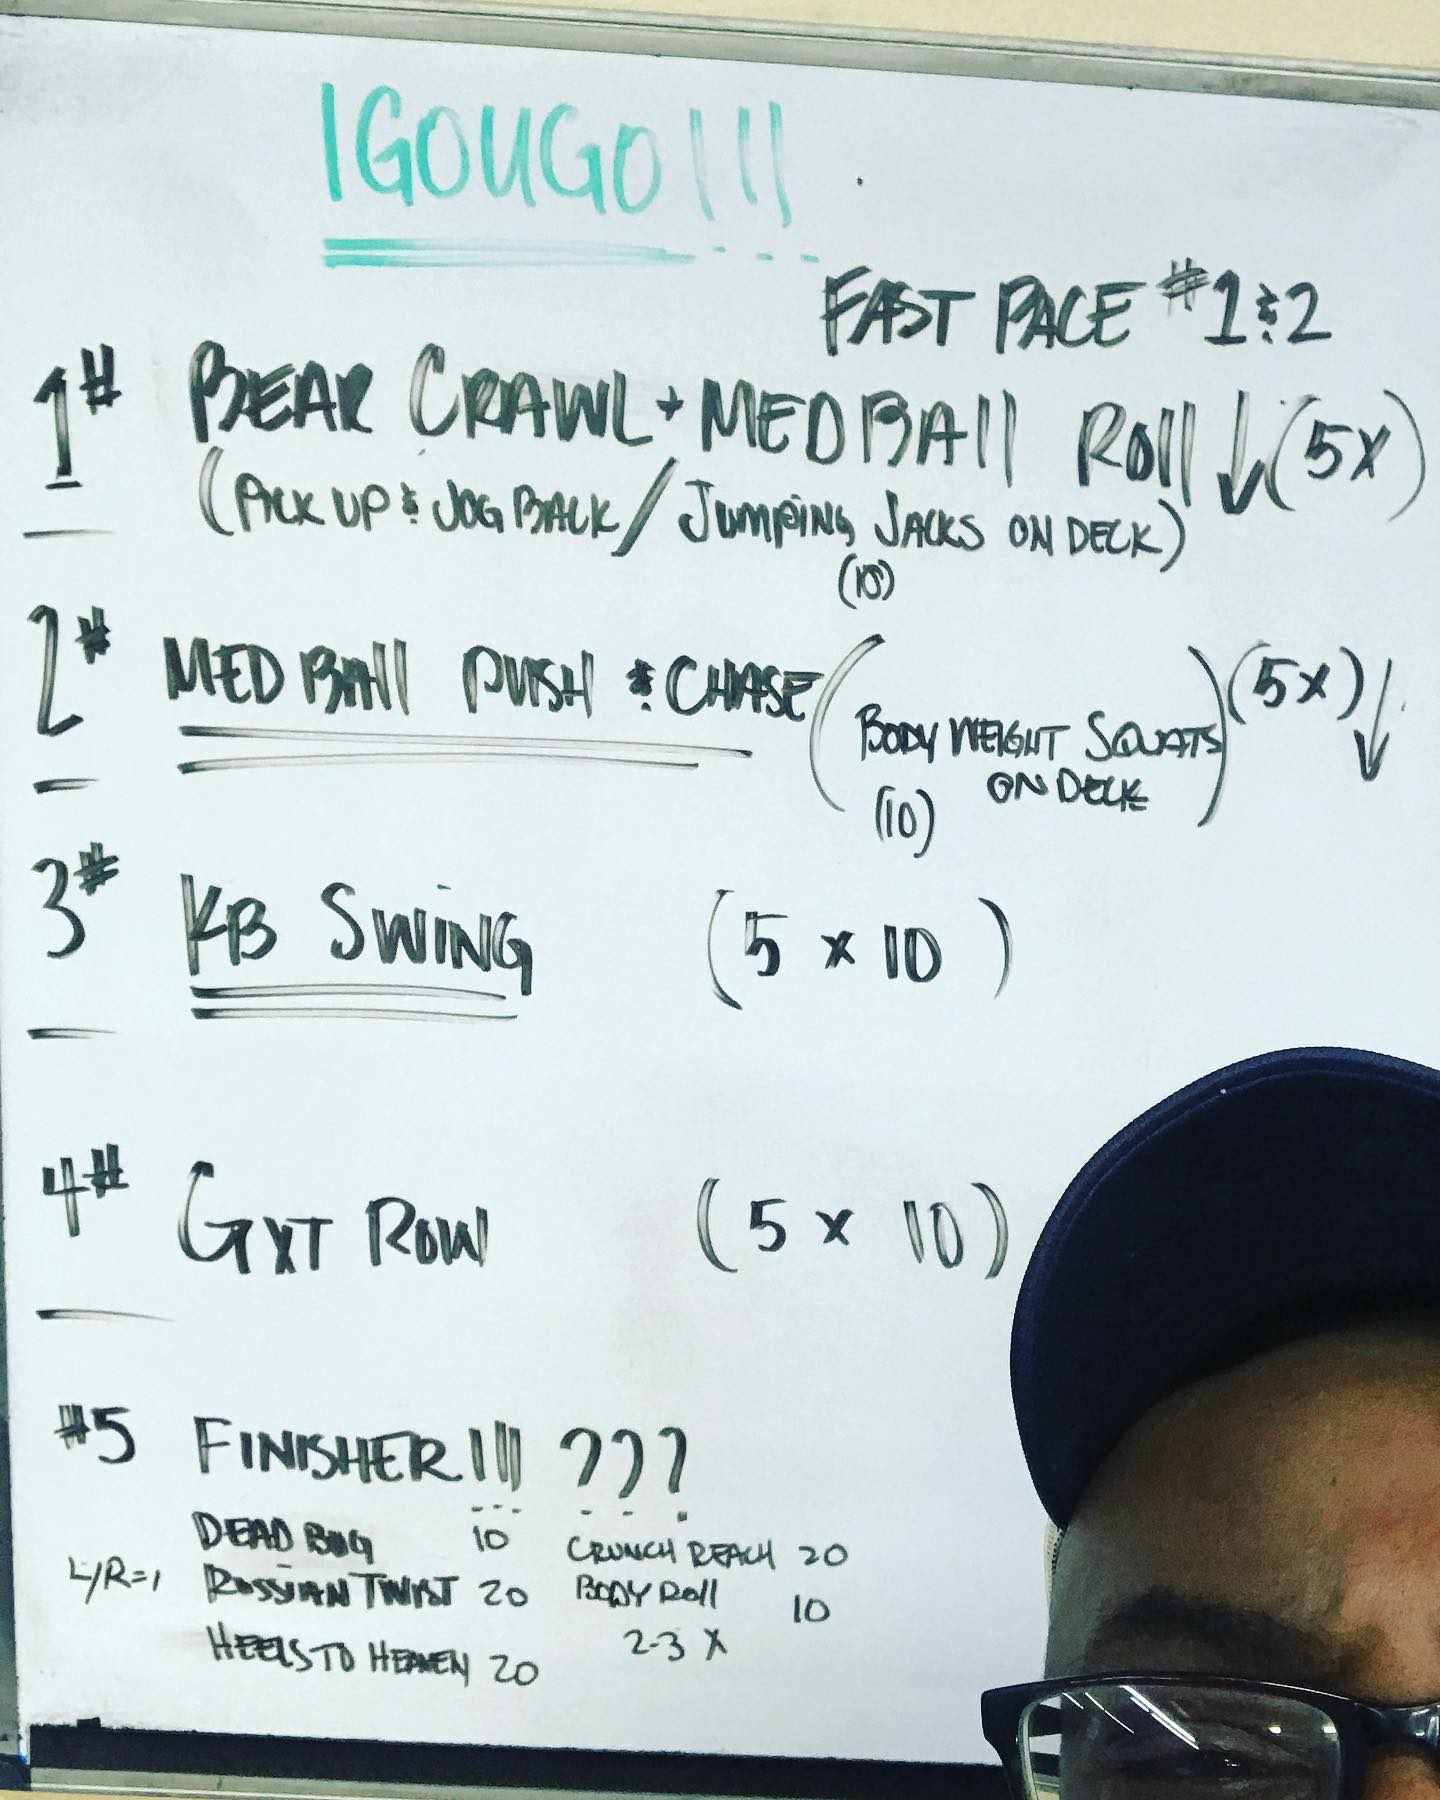 IGOUGO!!!
FAST PACE #1 & 2
1# BEAR CRAWL + MED BALL ROLL ↓ (5X)
(PICK UP & JOG BACK / JUMPING JACKS ON DECK)
(10)
2# MED BALL PUSH & CHASE (BODY WEIGHT SQUATS ON DECK) (5X) ↓
(10)
3# KB SWING (5 x 10)
4# GXT ROW (5 x 10)
#5 FINISHER!!! ???
DEAD BUG 10 CRUNCH REACH 20
L/R=1 RUSSIAN TWIST 20 BODY ROLL 10
HEELS TO HEAVEN 20 2-3 X